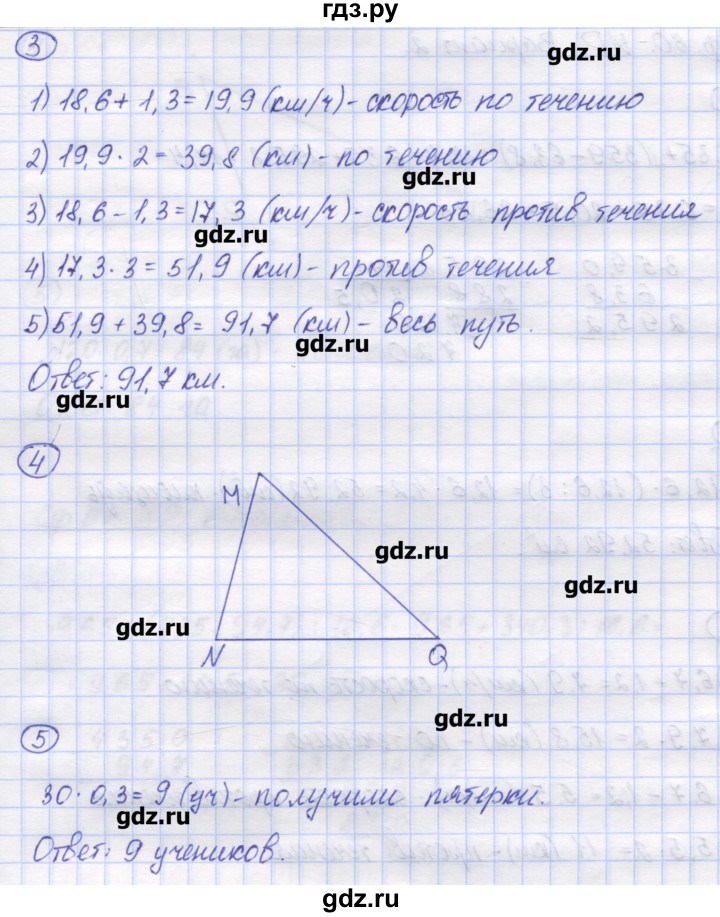 гдз.ру
3
gdz.ru
1) 18,6 + 1,3 = 19,9 (км/ч) - скорость по течению
2) 19,9 · 2 = 39,8 (км) - по течению
gdz.ru
3) 18,6 - 1,3 = 17,3 (км/ч) - скорость против течения
gdz.ru
4) 17,3 · 3 = 51,9 (км) - против течения
5) 51,9 + 39,8 = 91,7 (км) - весь путь.
gdz.ru
Ответ: 91,7 км.
gdz.ru
4
M
gdz.ru
gdz.ru
gdz.ru
N Q
gdz.ru
5
30 · 0,3 = 9 (уч) - получили пятерки.
gdz.ru
Ответ: 9 учеников.
gdz.ru